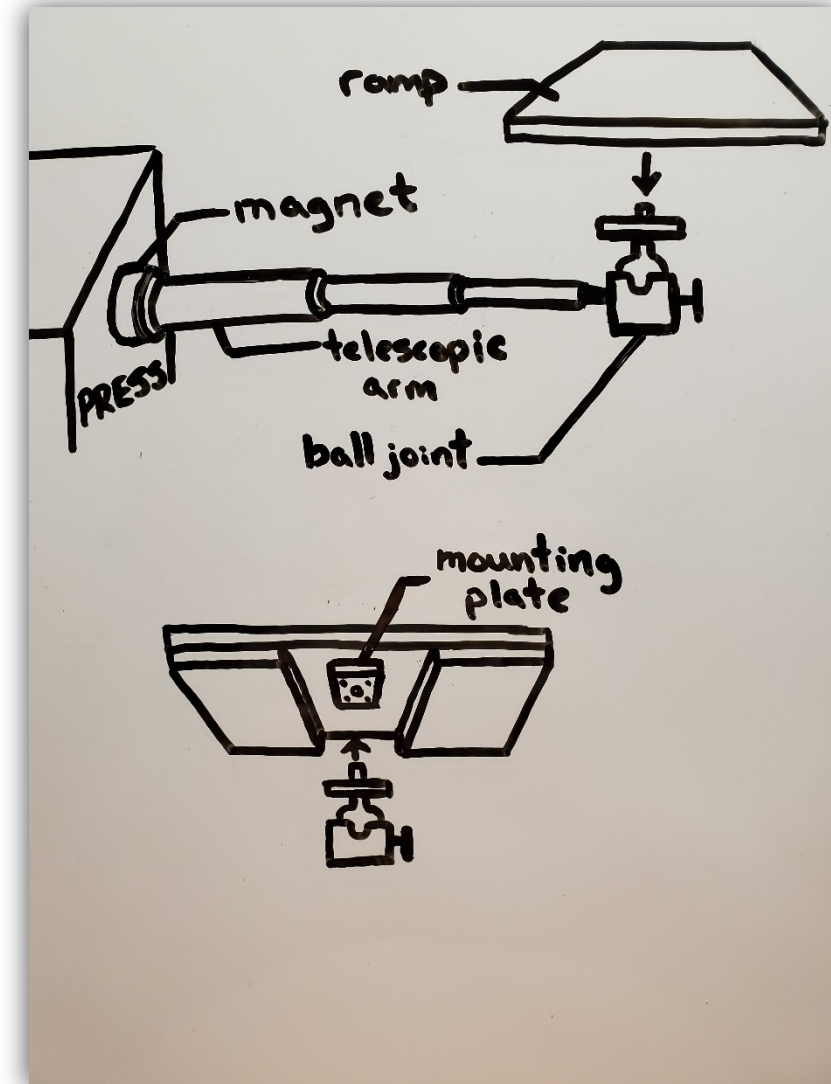 ramp
magnet
telescopic
arm
PRESS
ball joint
mounting
plate